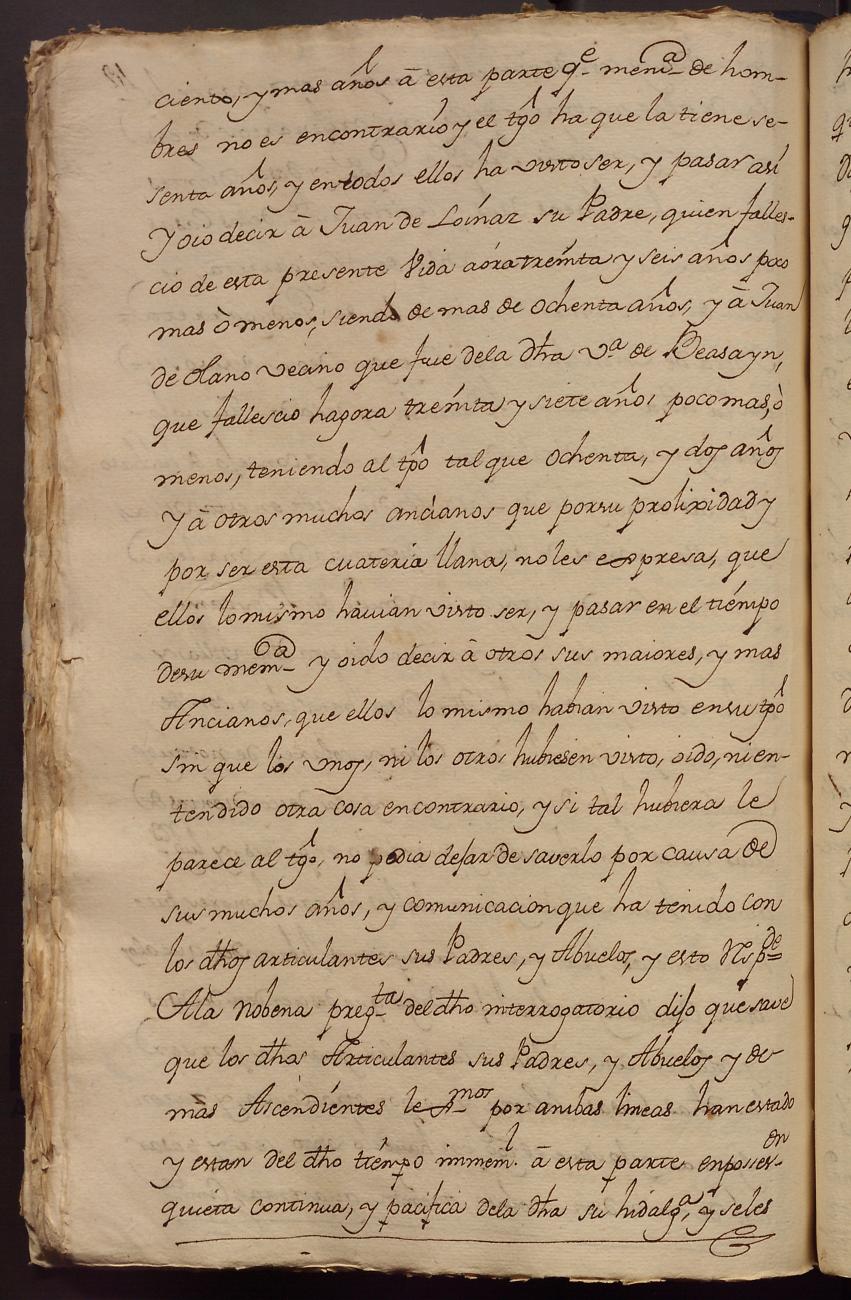 ciento, y mas años â esta parte qe. mema. de hom-
bres no es encontrario y el tgo ha que la tiene se-
senta años, y en todos ellos ha visto ser, y pasar asi
Y oio decir â Juan de Loinaz su Padre, quien falles-
cio de esta presente Vida aóra treinta y seis años poco
mas ò menos, siendo de mas de Ochenta años, y â Juan
de Olano vecino que fue dela dha va. de Beasayn,
que fallescio hagora treinta y siete años poco mas, ò
menos, teniendo al tpo tal que Ochenta, y dos años
Y â otros muchos ancianos que por su prolixidad y
por ser esta cuateria llana, no les expresa, que
ellos lo mismo havian visto ser, y pasar en el tiempo
de su mema. y oido decir â otros sus maiores, y mas
Ancianos, que ellos lo mismo habian visto en su tpo
sin que los unos, ni los otros hubiesen visto, oido, ni en-
tendido otra cosa en contrario, y si tal hubiera le
parece al tgo, no podia dejar de saverlo por causa de
sus muchos años, y comunicacion que ha tenido con
los dhos articulantes sus Padres, y Abuelos, y esto Respde.
A la Nobena pregta. del dho interrogatorio dijo que save
que los dhos Articulantes sus Padres, y Abuelos y de
màs Ascendientes lexmos. por ambas lineas han estado
y estan del dho tiempo immeml. â esta parte en posesen.
quieta continua, y pacifica dela dha su hidalga, y seles